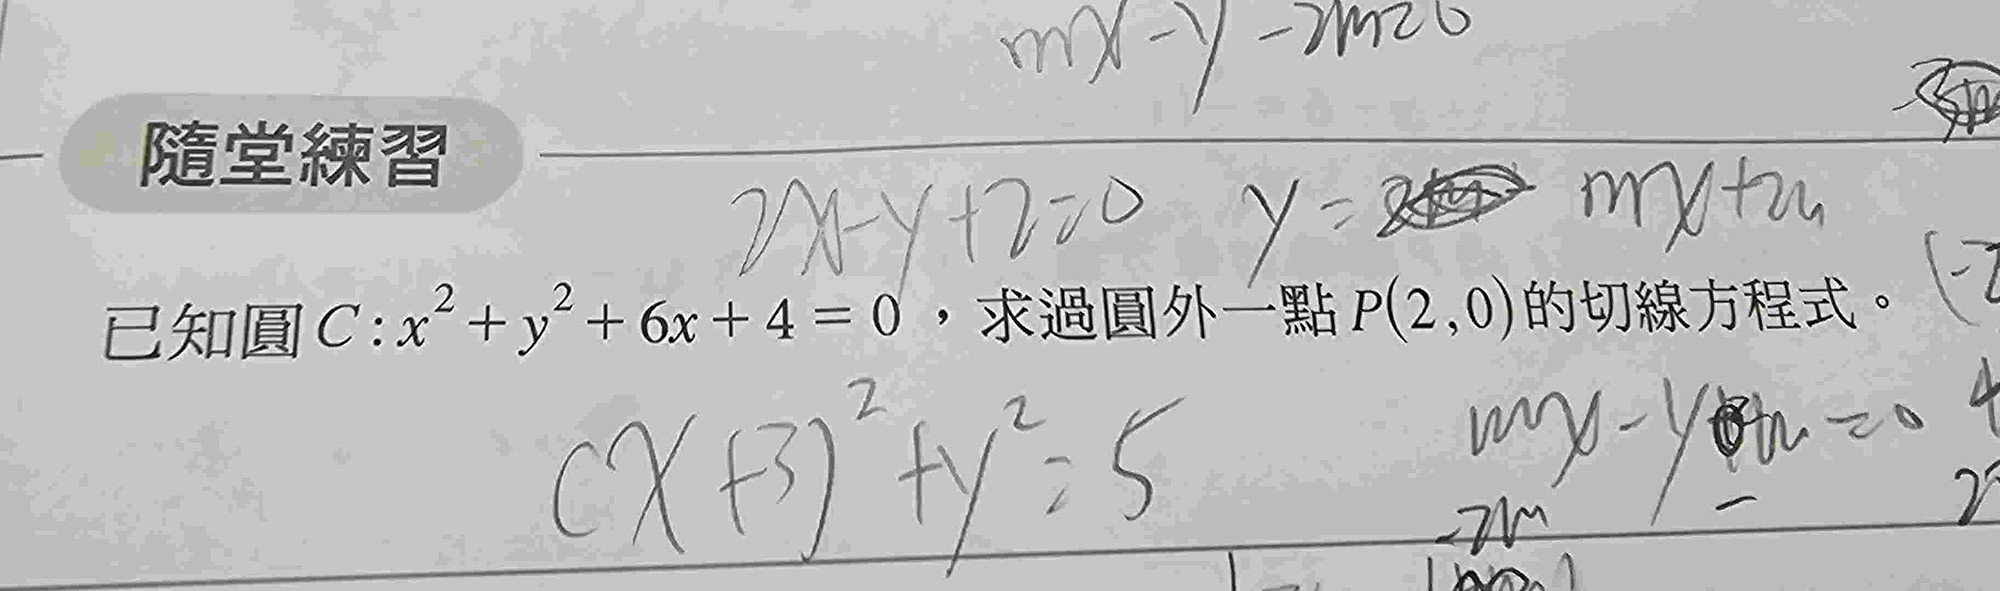 mx-y-2m=0
隨堂練習
2x-y+2=0 y= mx+2m
已知圓C:x²+y²+6x+4=0,求過圓外一點P(2,0)的切線方程式。
(x+3)²+y²=5
mx-y =0
-2m